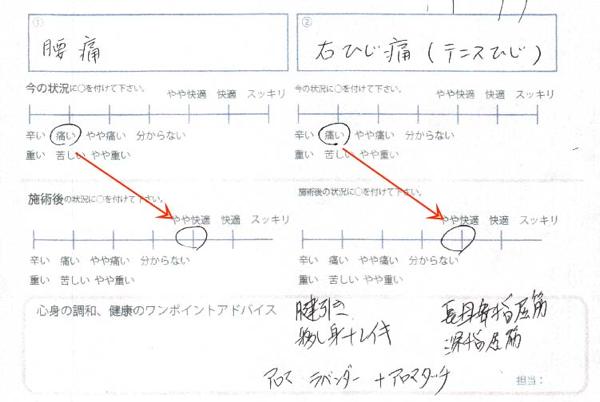 ① ②
腰痛 右ひじ痛(テニスひじ)
今の状況に○を付けて下さい。 今の状況に○を付けて下さい。
やや快適 快適 スッキリ やや快適 快適 スッキリ
辛い 痛い やや痛い 分からない 辛い 痛い やや痛い 分からない
重い 苦しい やや重い 重い 苦しい やや重い
施術後の状況に○を付けて下さい。 施術後の状況に○を付けて下さい。
やや快適 快適 スッキリ やや快適 快適 スッキリ
辛い 痛い やや痛い 分からない 辛い 痛い やや痛い 分からない
重い 苦しい やや重い 重い 苦しい やや重い
心身の調和、健康のワンポイントアドバイス
腱引き 長母指屈筋
+レイキ 深指屈筋
アロマ ラベンダー +アロマタッチ
担当: